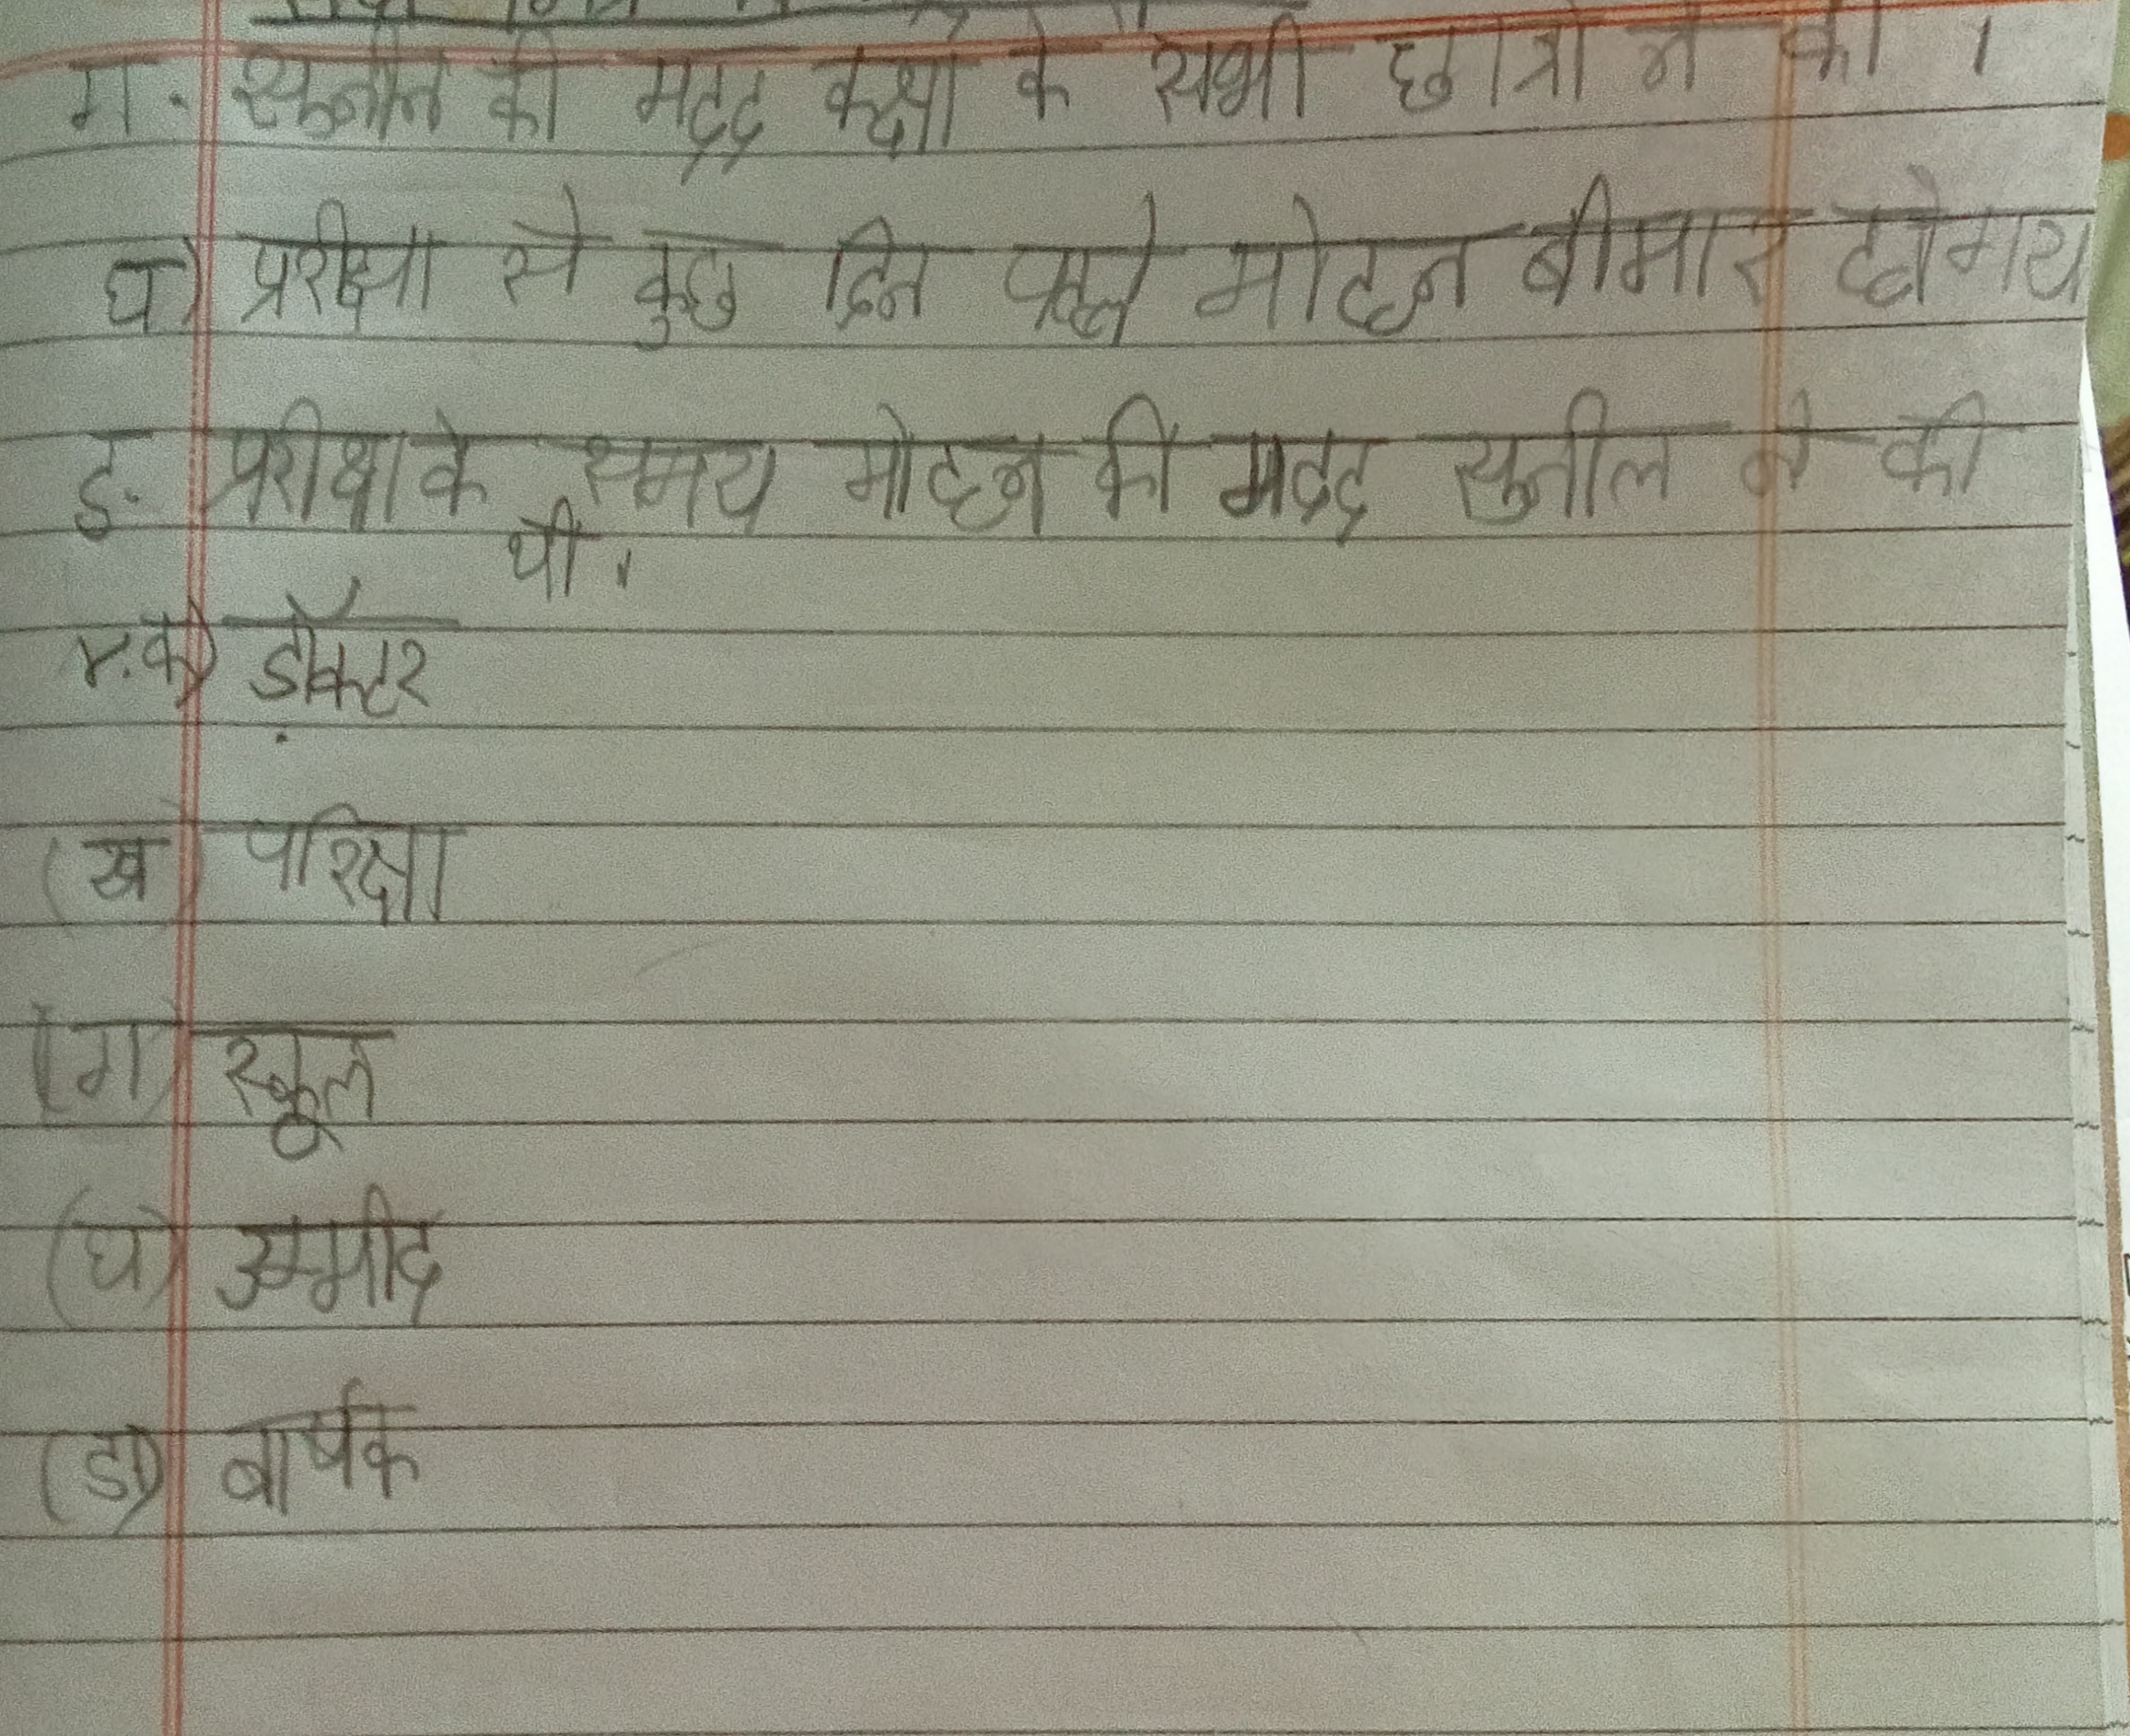 ग. सुनील की मदद कक्षा के सभी छात्रो ने की ।
घ) प्ररीक्षा से कुछ दिन पहले मोहन बीमार हो गय
ड. प्ररीक्षा के समय मोहन की मदद सुनील ने की
थी ।
४.क) डॉक्टर
(ख) परिक्षा
(ग) स्कूल
(घ) उम्मीद
(ड) बार्षक